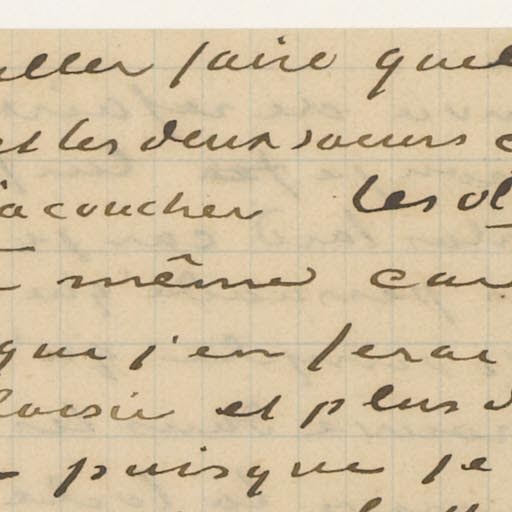 aller faire quel
et les deux soeurs
acoucher les ol
même car
que j'en ferai
loisir et plus d
puisque je